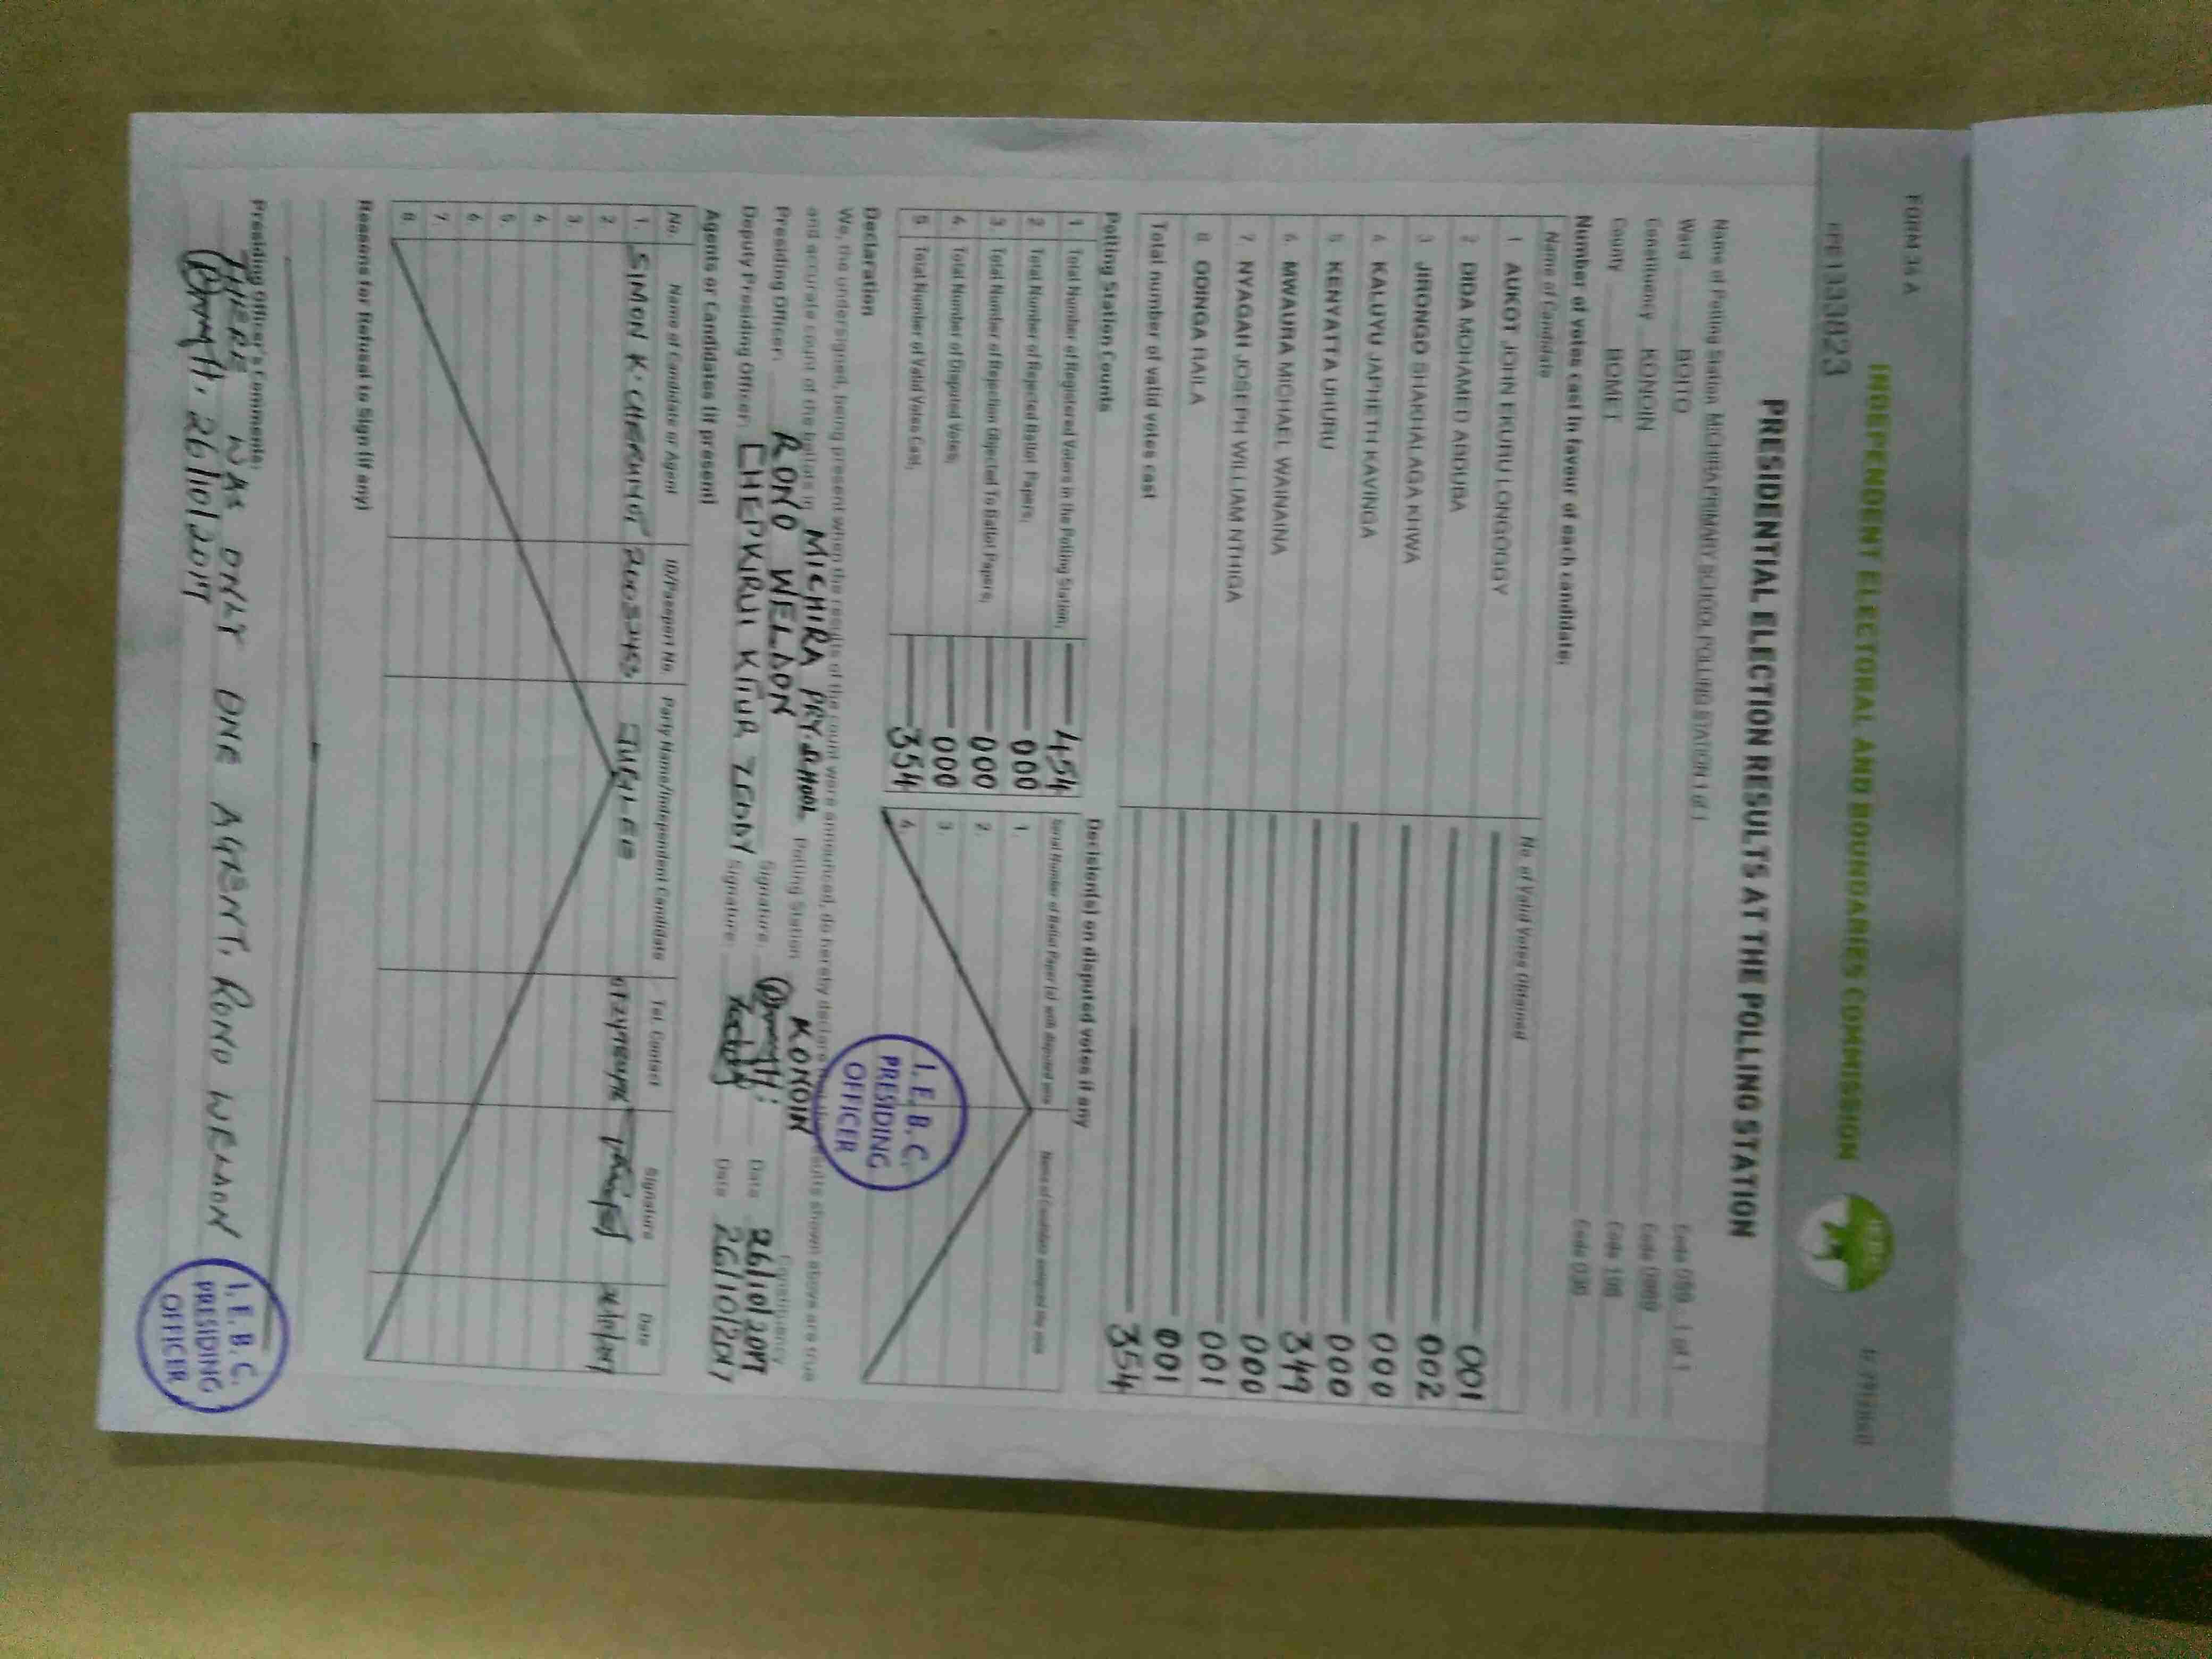 FORM 34 A
INDEPENDENT ELECTORAL AND BOUNDARIES COMMISSION
PRE1333823
PRESIDENTIAL ELECTION RESULTS AT THE POLLING STATION
Name of Polling Station MICHIRA PRIMARY SCHOOL POLLING STATION 1 of 1
Ward BOITO
Constituency KONOIN
County BOMET Code 036
Number of votes cast in favour of each candidate:
Name of Candidate No. of Valid Votes Obtained
1 AUKOT JOHN EKURU LONGOGGY 001
2 DIDA MOHAMED ABDUBA 002
3 JIRONGO SHAKHALAGA KHWA 000
4 KALUYU JAPHETH KAVINGA 000
5 KENYATTA UHURU 349
6 MWAURA MICHAEL WAINAINA 000
7 NYAGAH JOSEPH WILLIAM NTHIGA 001
8 ODINGA RAILA 001
Total number of valid votes cast 354
Polling Station Counts
1 Total Number of Registered Voters in the Polling Station; 454
2 Total Number of Rejected Ballot Papers; 000
3. Total Number of Rejection Objected To Ballot Papers; 000
4. Total Number of Disputed Votes; 000
5 Total Number of Valid Votes Cast; 354
Decision(s) on disputed votes if any
Serial Number of Ballot Paper (s) with disputed vote
1.
2.
3.
4.
I.E.B.C.
PRESIDING
OFFICER
Declaration
We, the undersigned, being present when the results of the count were announced, do hereby declare
and accurate count of the ballots in MICHIRA PRY SCHOOL Polling Station KONOIN Constituency
Presiding Officer: RONO WELDON Signature: Date 26/10/2017
Deputy Presiding Officer: CHEPKIRUI Signature: Date 26/10/2017
Agents or Candidates (if present)
No. Name of Candidate or Agent ID/Passport No. Party Name/Independent Candidate Tel. Contact Signature Date
1. SIMON K. JUBILEE
2.
3.
4.
5.
6.
7.
8.
Reasons for Refusal to Sign (if any)
Presiding Officer's Comments:
THERE WAS ONLY ONE AGENT. RONO WELDON
26/10/2017
I.E.B.C.
PRESIDING
OFFICER